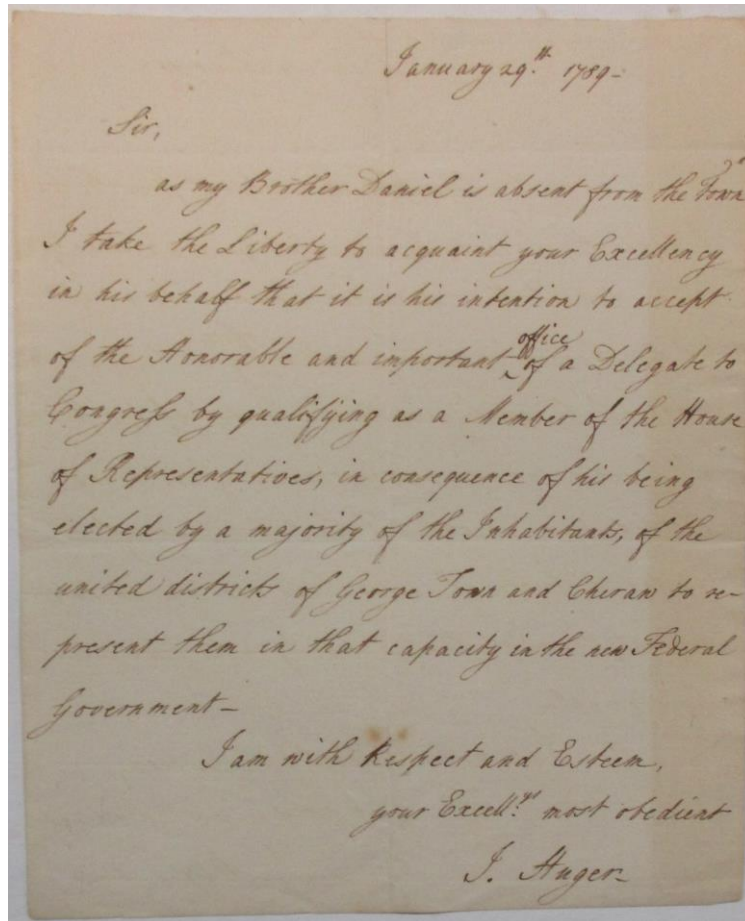 January 29.th 1789-
Sir,
as my Brother Daniel is absent from the Town
I take the Liberty to acquaint your Excellency
in his behalf that it is his intention to accept
of the Honorable and important office of a Delegate to
Congress by qualifying as a Member of the House
of Representatives, in consequence of his being
elected by a majority of the Inhabitants, of the
united districts of George Town and Cheraw to re-
present them in that capacity in the new Federal
Government-
I am with Respect and Esteem,
your Excell.ys most obedient
J. Huger-